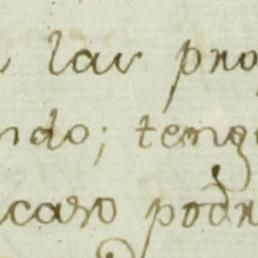 las pro
ndo; teng
caso podr